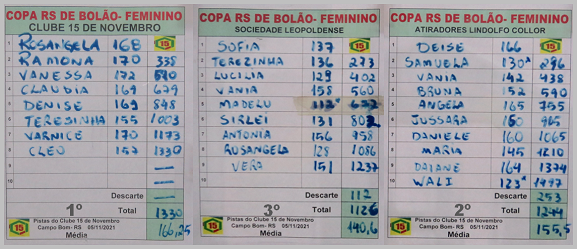 COPA RS DE BOLÃO- FEMININO
CLUBE 15 DE NOVEMBRO
1 ROSANGELA 168 15
2 RAMONA 170 338
3 VANESSA 172 510
4 CLAUDIA 169 679
5 DENISE 169 848
6 TERESINHA 155 1003
7 VARNICE 170 1173
8 CLEO 157 1330
9 —
10 —
Descarte —
1º Total 1330
15 Pistas do Clube 15 de Novembro
Campo Bom- RS 05/11/2021
Média 166,25
COPA RS DE BOLÃO- FEMININO
SOCIEDADE LEOPOLDENSE
1 SOFIA 137 15
2 TEREZINHA 136 273
3 LUCILIA 129 402
4 VANIA 158 560
5 MADELU 112* 672
6 SIRLEI 131 802
7 ANTONIA 156 958
8 ROSANGELA 128 1086
9 VERA 151 1237
10
Descarte 112
3º Total 1126
15 Pistas do Clube 15 de Novembro
Campo Bom- RS 05/11/2021
Média 140,6
COPA RS DE BOLÃO- FEMININO
ATIRADORES LINDOLFO COLLOR
1 DEISE 166 15
2 SAMUELA 130* 296
3 VANIA 142 438
4 BRUNA 152 590
5 ANGELA 165 755
6 JUSSARA
7 DANIELE 160 1065
8 MARIA 145 1210
9 DAIANE 164 1374
10 WALI 123* 1497
Descarte 253
2º Total 1244
15 Pistas do Clube 15 de Novembro
Campo Bom- RS 05/11/2021
Média 155,5